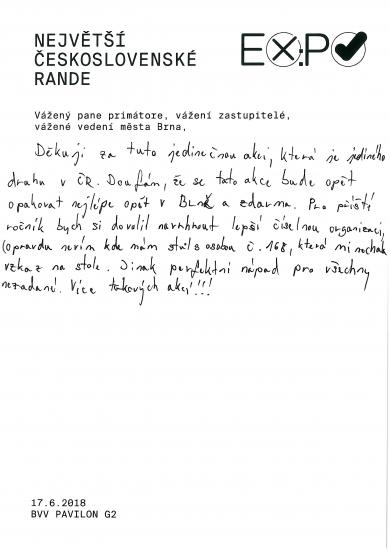 NEJVĚTŠÍ
ČESKOSLOVENSKÉ
RANDE
EX:PO
Vážený pane primátore, vážení zastupitelé,
vážené vedení města Brna,
Děkuji za tuto jedinečnou akci, která je jediného
druhu v ČR. Doufám, že se tato akce bude opět
opakovat nejlépe opět v Brně a zdarma. Pro příští
ročník bych si dovolil navrhnout lepší číselnou organizaci,
(opravdu nevím kde mám stůl s osobou č. 168, která mi nechala
vzkaz na stole. Jinak perfektní nápad pro všechny
nezadané. Více takových akcí!!!
17.6.2018
BVV PAVILON G2